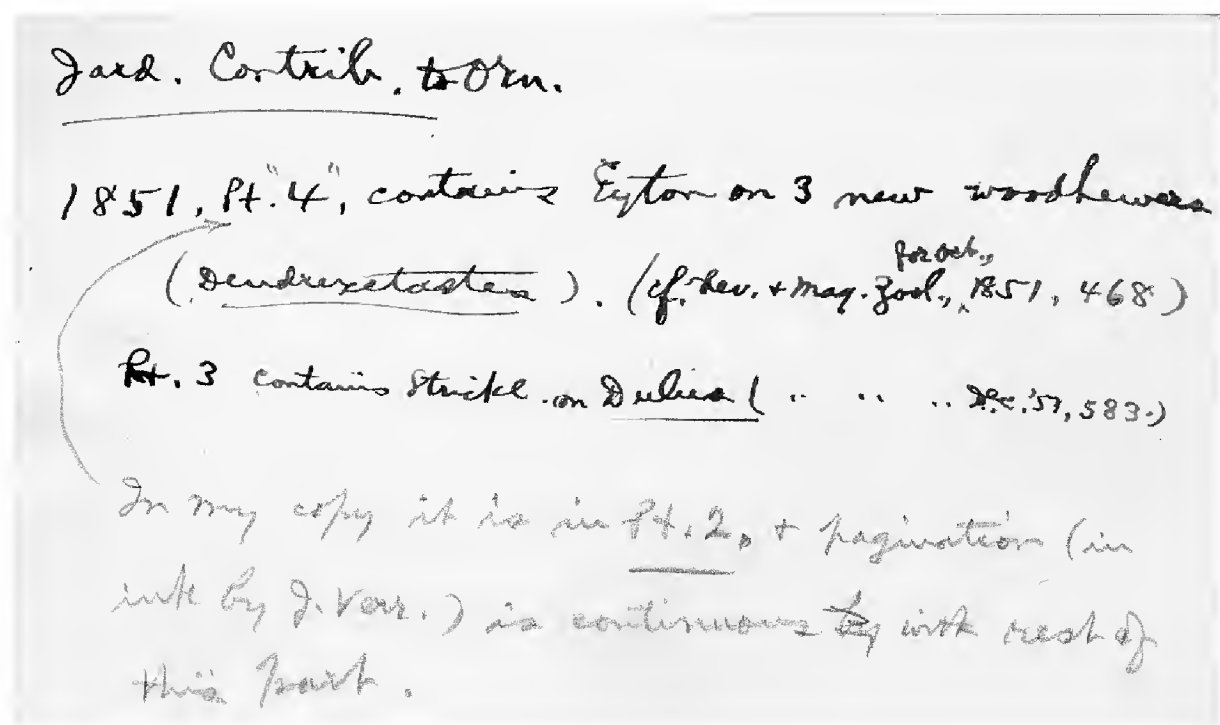 Jard. Contrib. to Orn.
1851, Pt. "4", contains Eyton on 3 new woodhewers
(Dendrexetastes). (cf. Rev. + Mag. Zool., for Oct., 1851, 468)
Pt. 3 contains Strickl. on Dulus ( .. .. .. Dec. '51, 583.)
In my copy it is in Pt. 2, + pagination (in
ink by J. Verr.) is continuous by with rest of
this part.